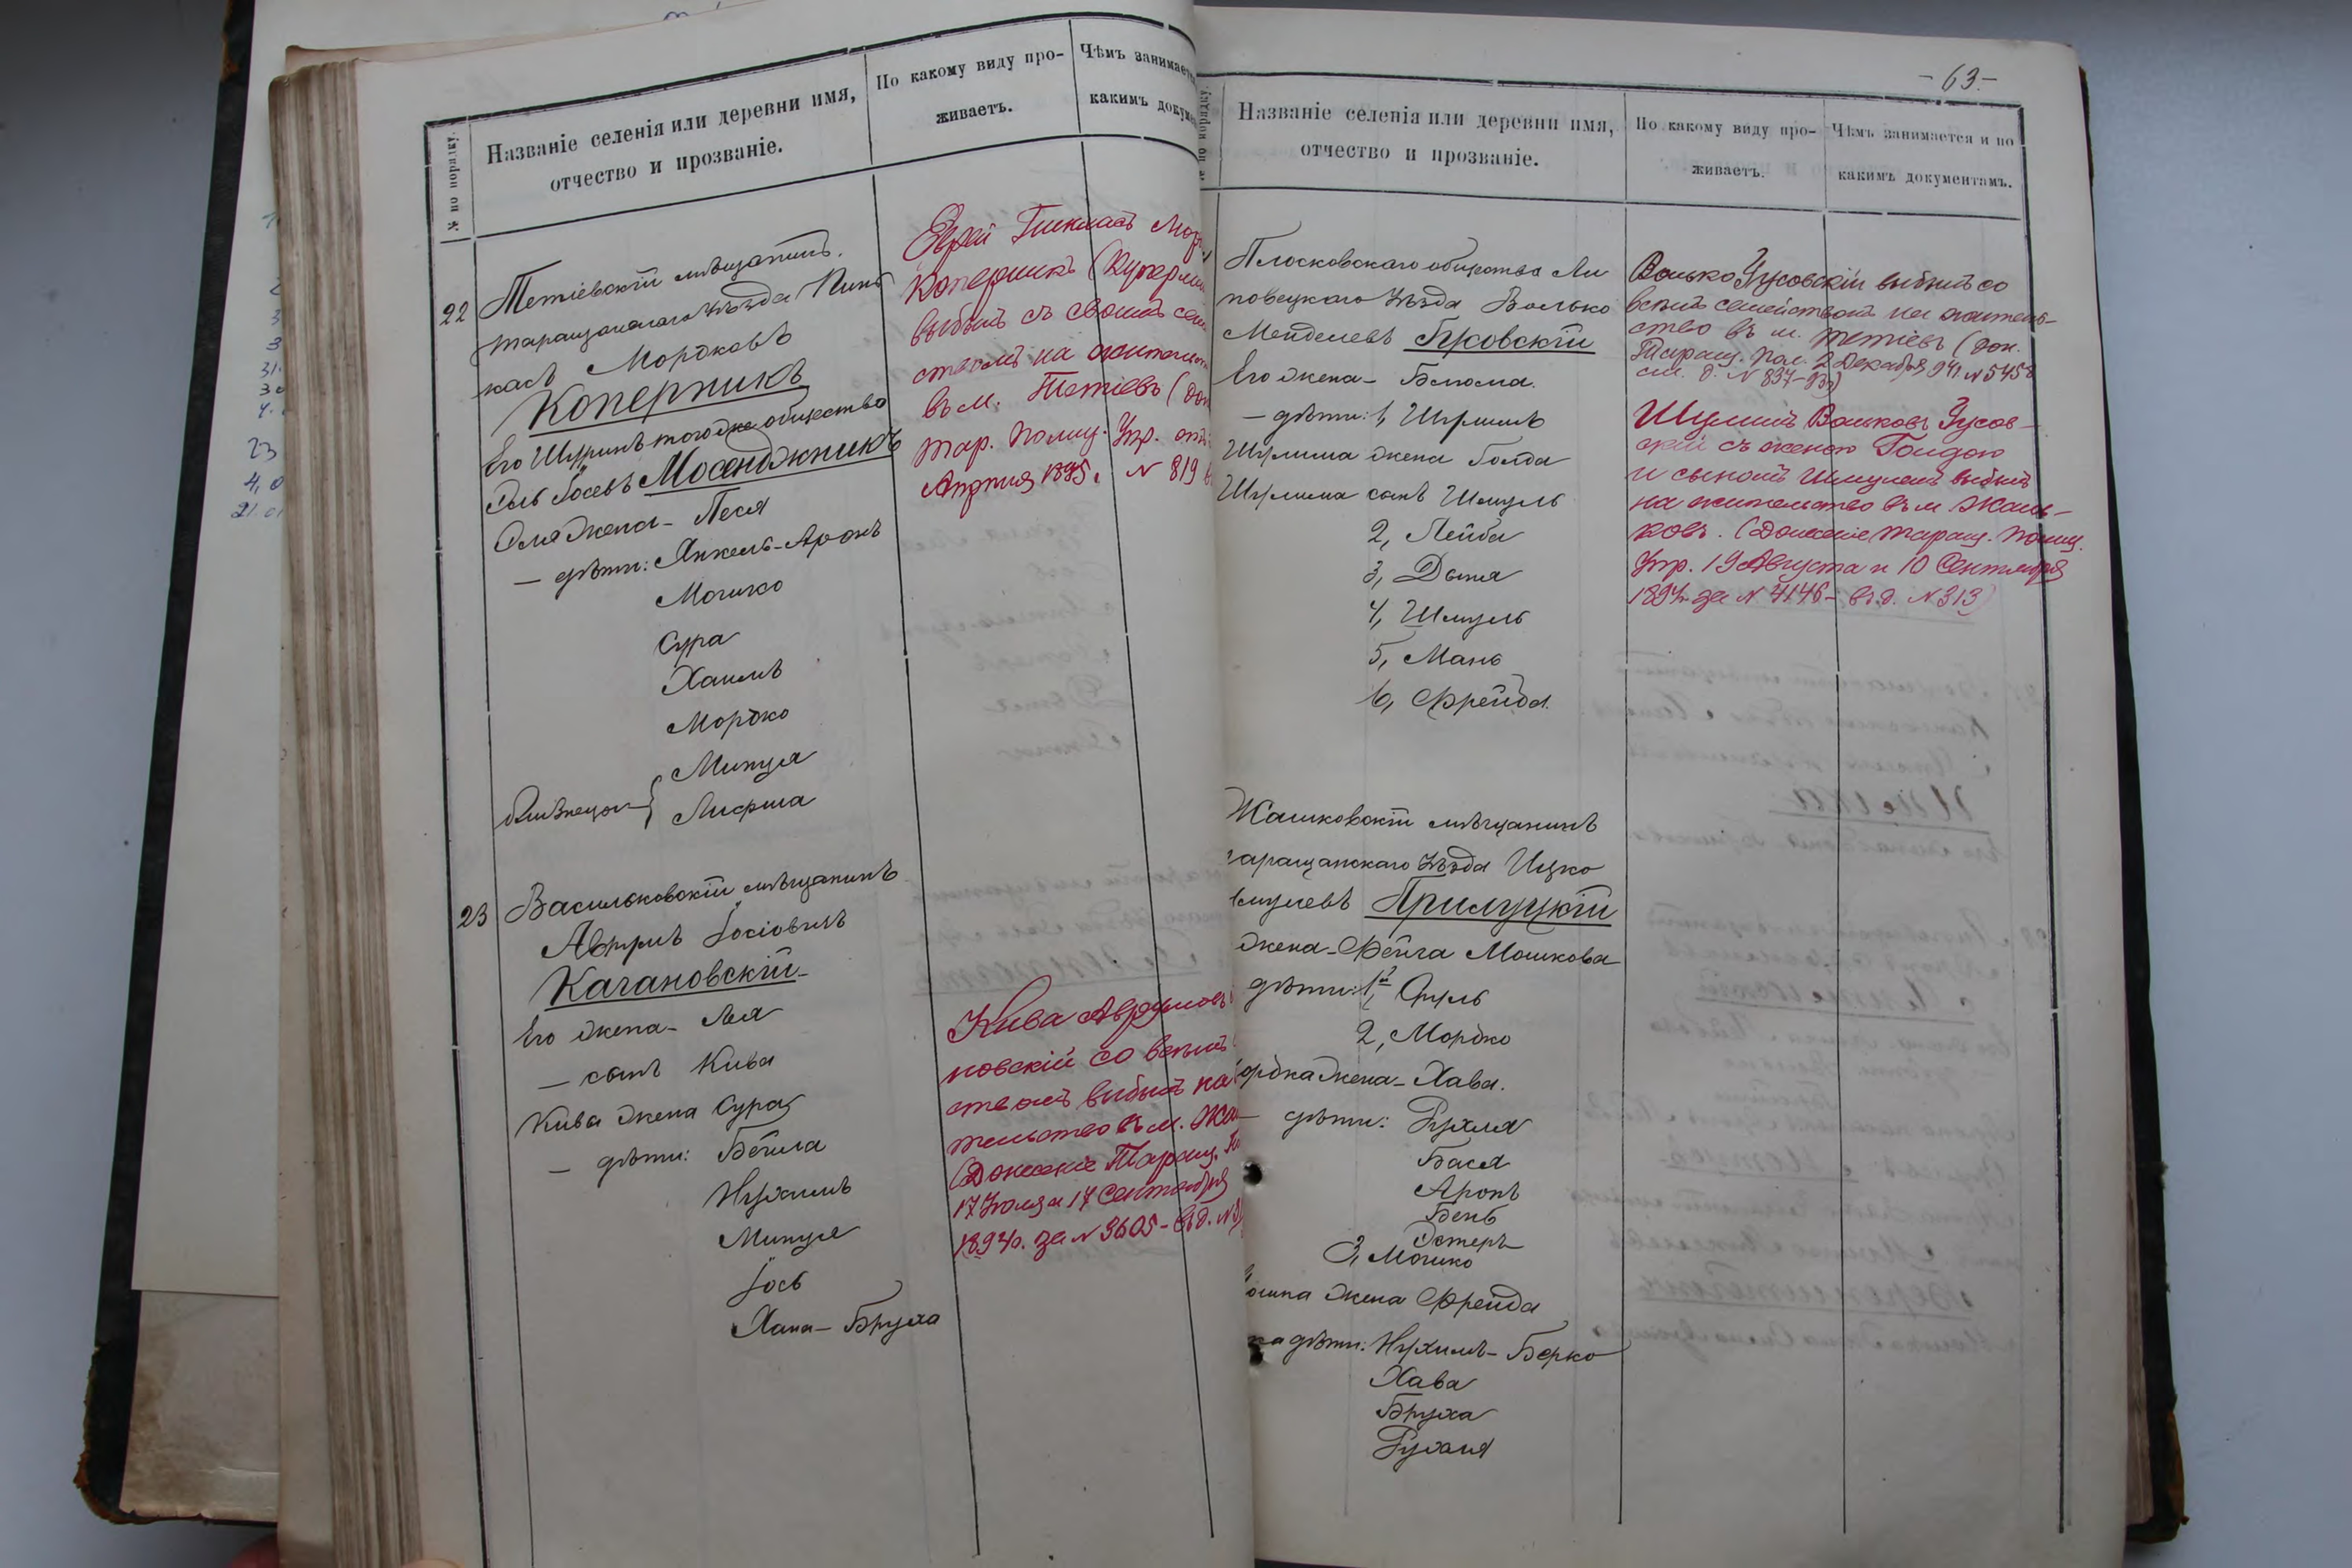 № по порядку.
Названіе селенія или деревни имя,
отчество и прозваніе.
По какому виду про-
живаетъ.
Чѣмъ занимает
какимъ докуме
22
Тетіевскій мѣщанинъ
Таращанскаго уѣзда Пинь
касъ Мордковъ
Коперникъ
Его Шуринъ того же общества
Эль Іосевъ
Эля жена - Песя
— дѣти: Янкель-Аронъ
Мошко
Сура
Хаимъ
Мордко
Минця
близнецы
Лифша
Еврей Пинкасъ Морд
Коперникъ (Куперми
выбылъ съ своимъ сем
ствомъ на жительст
въ м. Тетіевъ (дон
Тар. Полиц. Упр. отъ
Апрѣля 1895 г. N 819
23
Васильковскій мѣщанинъ
Аврумъ Іосіовичъ
Кагановскій-
Его жена - Лея
— сынъ Кива
Кива жена Сура
— дѣти: Бейла
Нухимъ
Минця
Іось
Хана - Бруха
Кива Аврумовъ
новскій со всѣмъ
ствомъ выбылъ на
тельство въ м. Жа
(Донесеніе Таращ. По
17 Іюля и 17 Сентября
1894 г. за N 3605 - въ д. N 3
- 63 -
по порядку.
Названіе селенія или деревни имя,
отчество и прозваніе.
По какому виду про-
живаетъ.
Чѣмъ занимается и по
какимъ документамъ.
Плосковскаго общества Ли
повецкаго уѣзда Волько
Мейделевъ Гусовскій
Его жена - Блюма.
— дѣти: 1, Шулимъ
Шулима жена Голда
Шулима сынъ Шмуль
2, Лейба
3, Двыня
4, Шмуль
5, Мань
6, Фрейда.
Волько Гусовскій выбылъ со
всѣмъ семействомъ на житель-
ство въ м. Тетіевъ (дон.
Таращ. Пол. 2 Декабря 94 г. N 5458
см. д. N 837-93 г)
Шулимъ Вольковъ Гусов-
скій съ женою Голдою
и сыномъ Шмулемъ выбылъ
на жительство въ м Жаш-
ковъ. (Донесеніе Таращ. Полиц.
Упр. 19 Августа и 10 Сентября
1894 г. за N 4146 - въ д. N 313)
Жашковскій мѣщанинъ
Таращанскаго уѣзда Ицко
Шмулевъ Прилуцкій
жена - Фейга Мошкова
дѣти: 1, Сруль
2, Мордко
ордка жена - Хава.
— дѣти: Рухля
Бася
Аронъ
Бень
Эстеръ
3, Мошко
ошка жена Фрейда
ка дѣти: Нухимъ - Берко
Хава
Бруха
Рухля